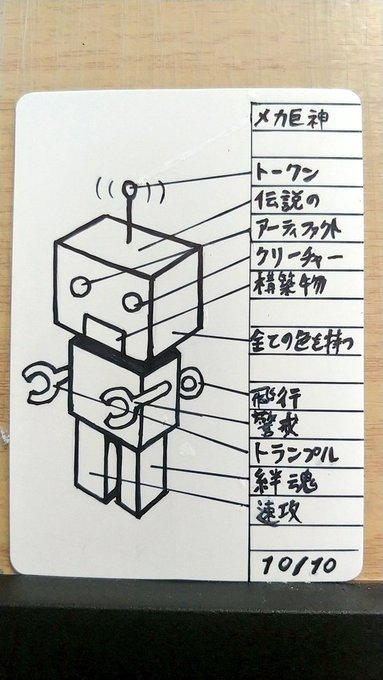 メカ巨神
トークン
伝説の
アーティファクト
クリーチャー
構築物
全ての色を持つ
飛行
警戒
トランプル
絆魂
速攻
10/10